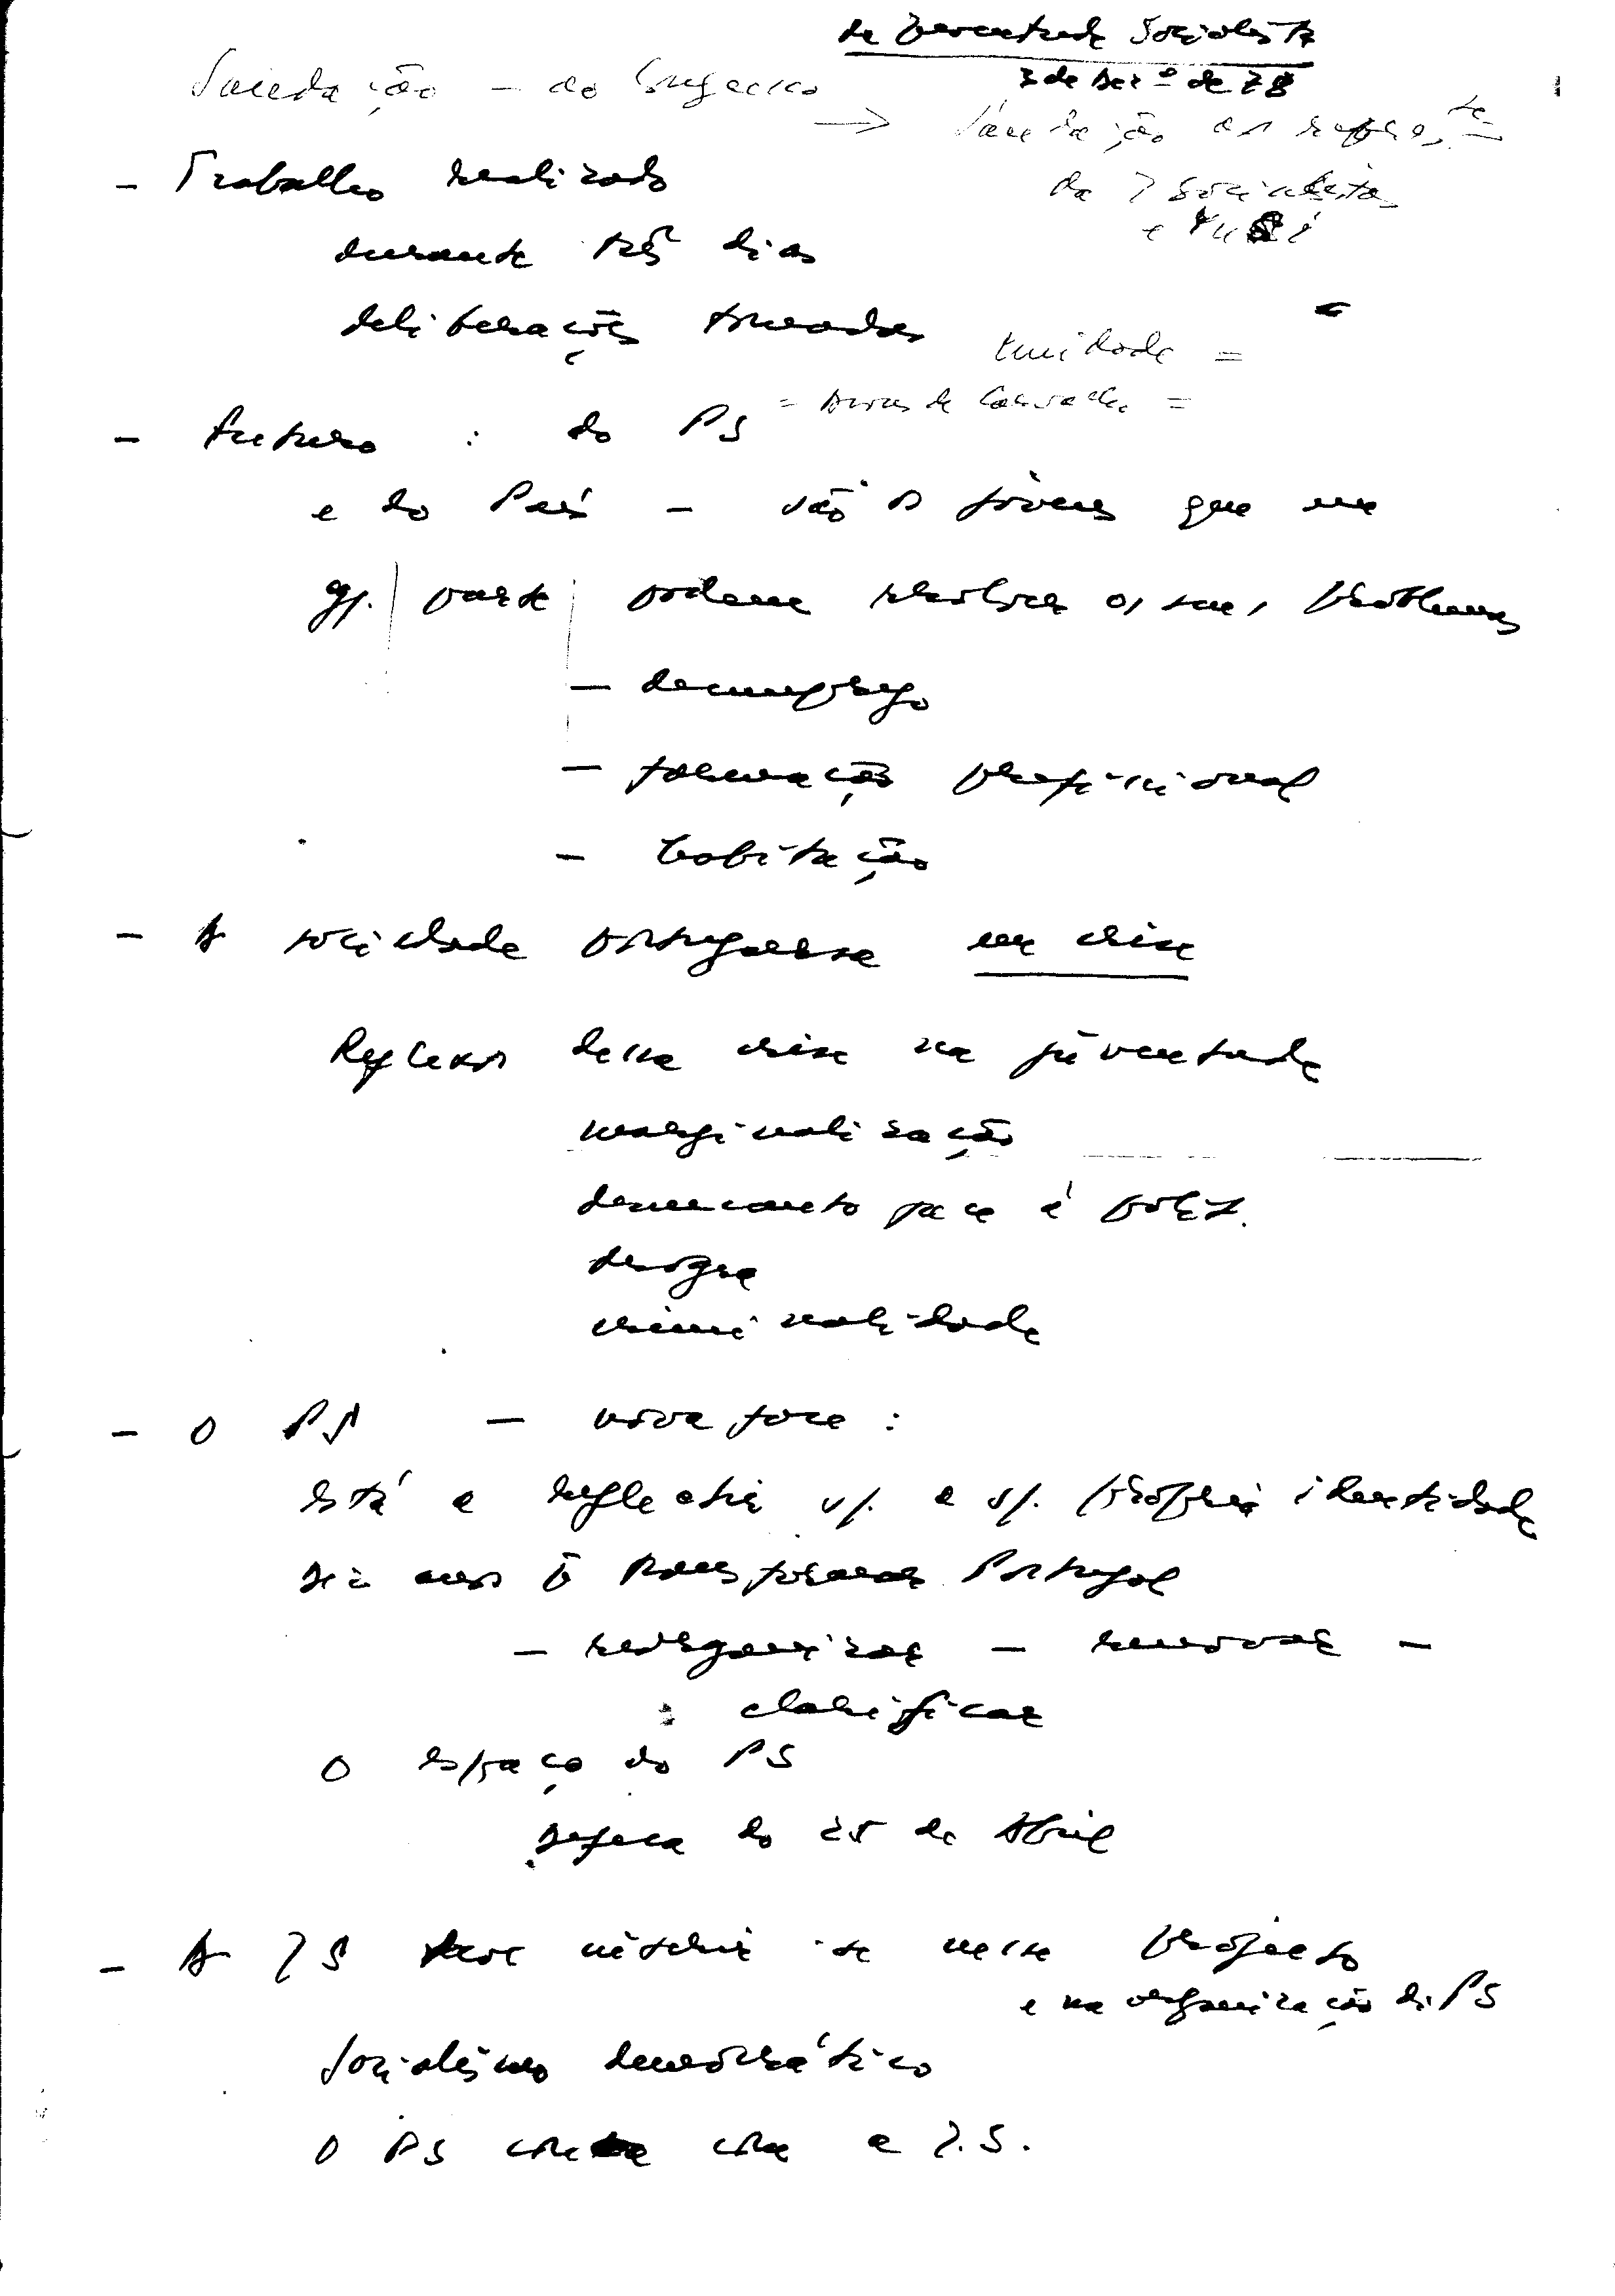 da Juventude Socialista
3 de Dez.º de 78
Saudação - ao Congresso
→ Saudação aos repres.tes
da J Socialistas
e IUSI
- Trabalho realizado
durante três dias
deliberações tomadas
unidade =
- futuro : do PS = Aires de Carvalho =
e do País - são os jovens que em
gr. parte podem resolver os seus problemas
- desemprego
- formação profissional
- habitação
- A sociedade portuguesa em crise
Reflexos dessa crise na juventude
marginalização
desencanto face à polít.
droga
criminalidade
- O PS - nova fase :
está a reflectir s/. a s/. própria identidade
transformar Portugal
- reorganizar - renovar -
: clarificar
O espaço do PS
Defesa do 25 de Abril
- A JS deve inserir-se nesse projecto
e na organização do PS
Socialismo democrático
O PS conta com a J.S.